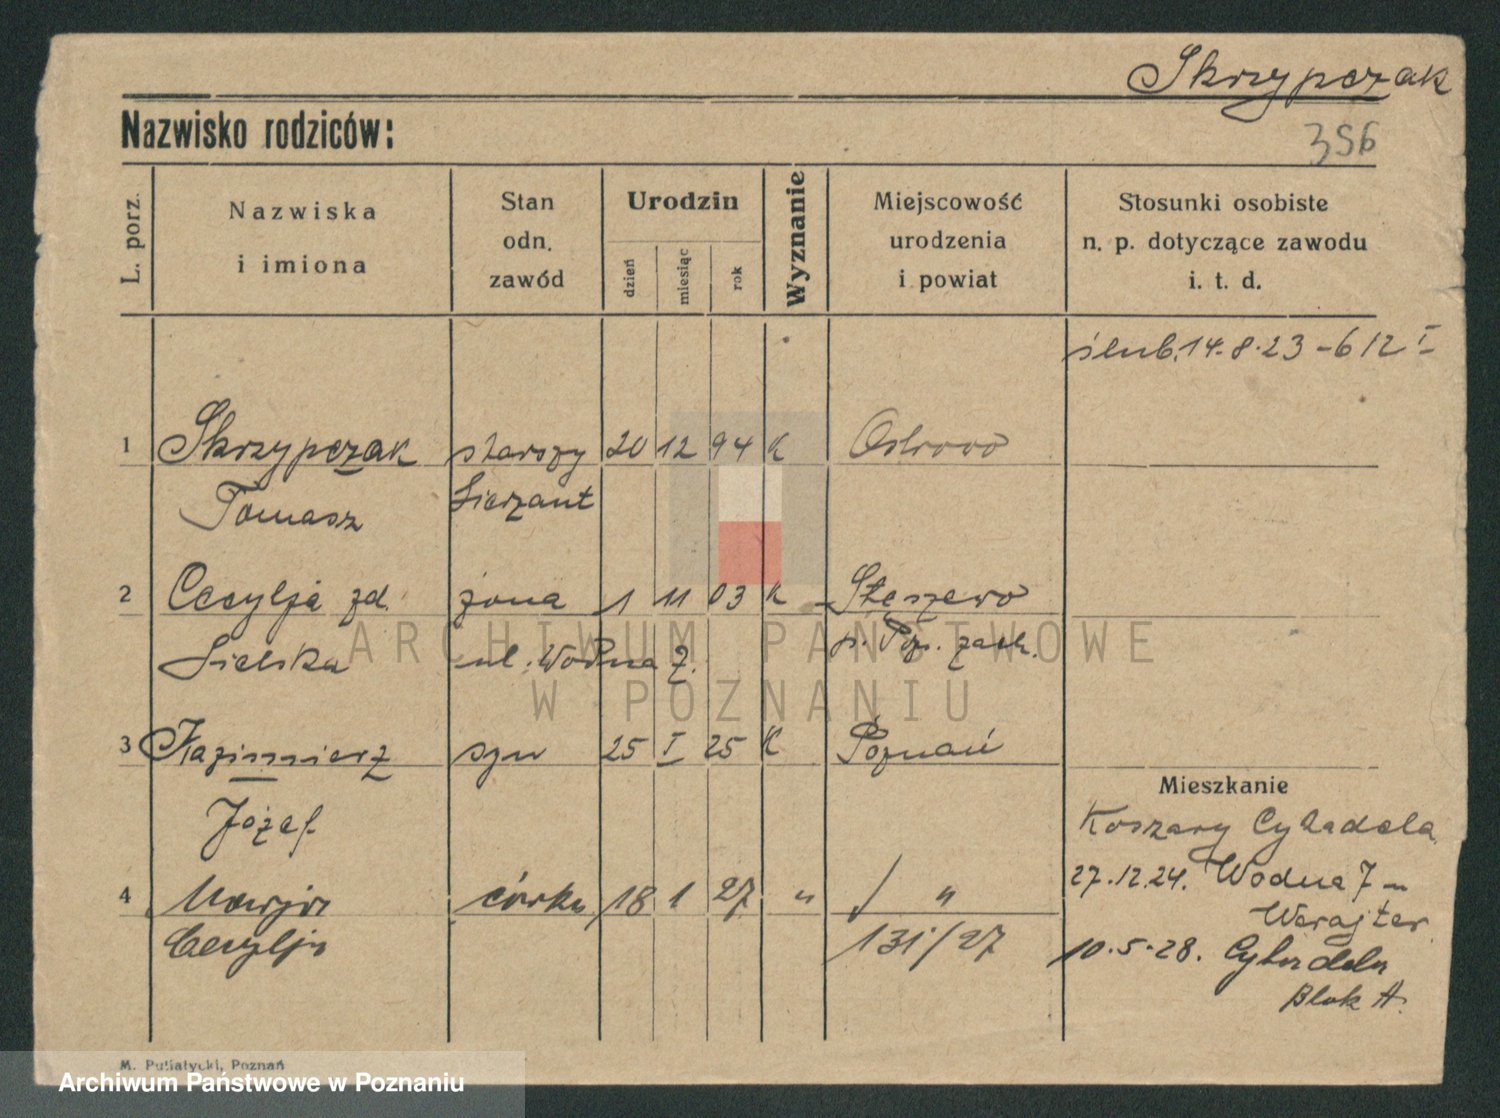 Skrzypczak
Nazwisko rodziców:
356
L. porz.
Nazwiska
i imiona
Stan
odn.
zawód
Urodzin
dzień
miesiąc
rok
Wyznanie
Miejscowość
urodzenia
i powiat
Stosunki osobiste
n. p. dotyczące zawodu
i. t. d.
ślub. 14.8.23 - 612 I
1 Skrzypczak starszy 20 12 94 K Ostrowo
Tomasz Sierżant
2 Cecylja zd. żona 1 11 03 K Stęszewo
Sielska ul. Wodna 7. p. Poz. zach.
ARCHIWUM PAŃSTWOWE
W POZNANIU
3 Kazimierz syn 25 I 25 K Poznań
Józef
Mieszkanie
Koszary Cytadela
27.12.24. Wodna 7
4 Marja córka 18 1 27 " "
Cecylja 131/27
10.5.28. Cytadela
Blok A.
M. Putiatycki, Poznań
Archiwum Państwowe w Poznaniu